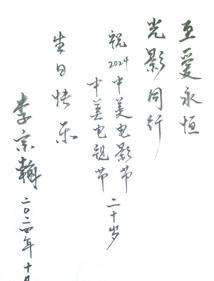 互爱永恒
光影同行
祝2024中美电影节
中美电视节二十岁
生日快乐
李宗翰
二〇二四年十月